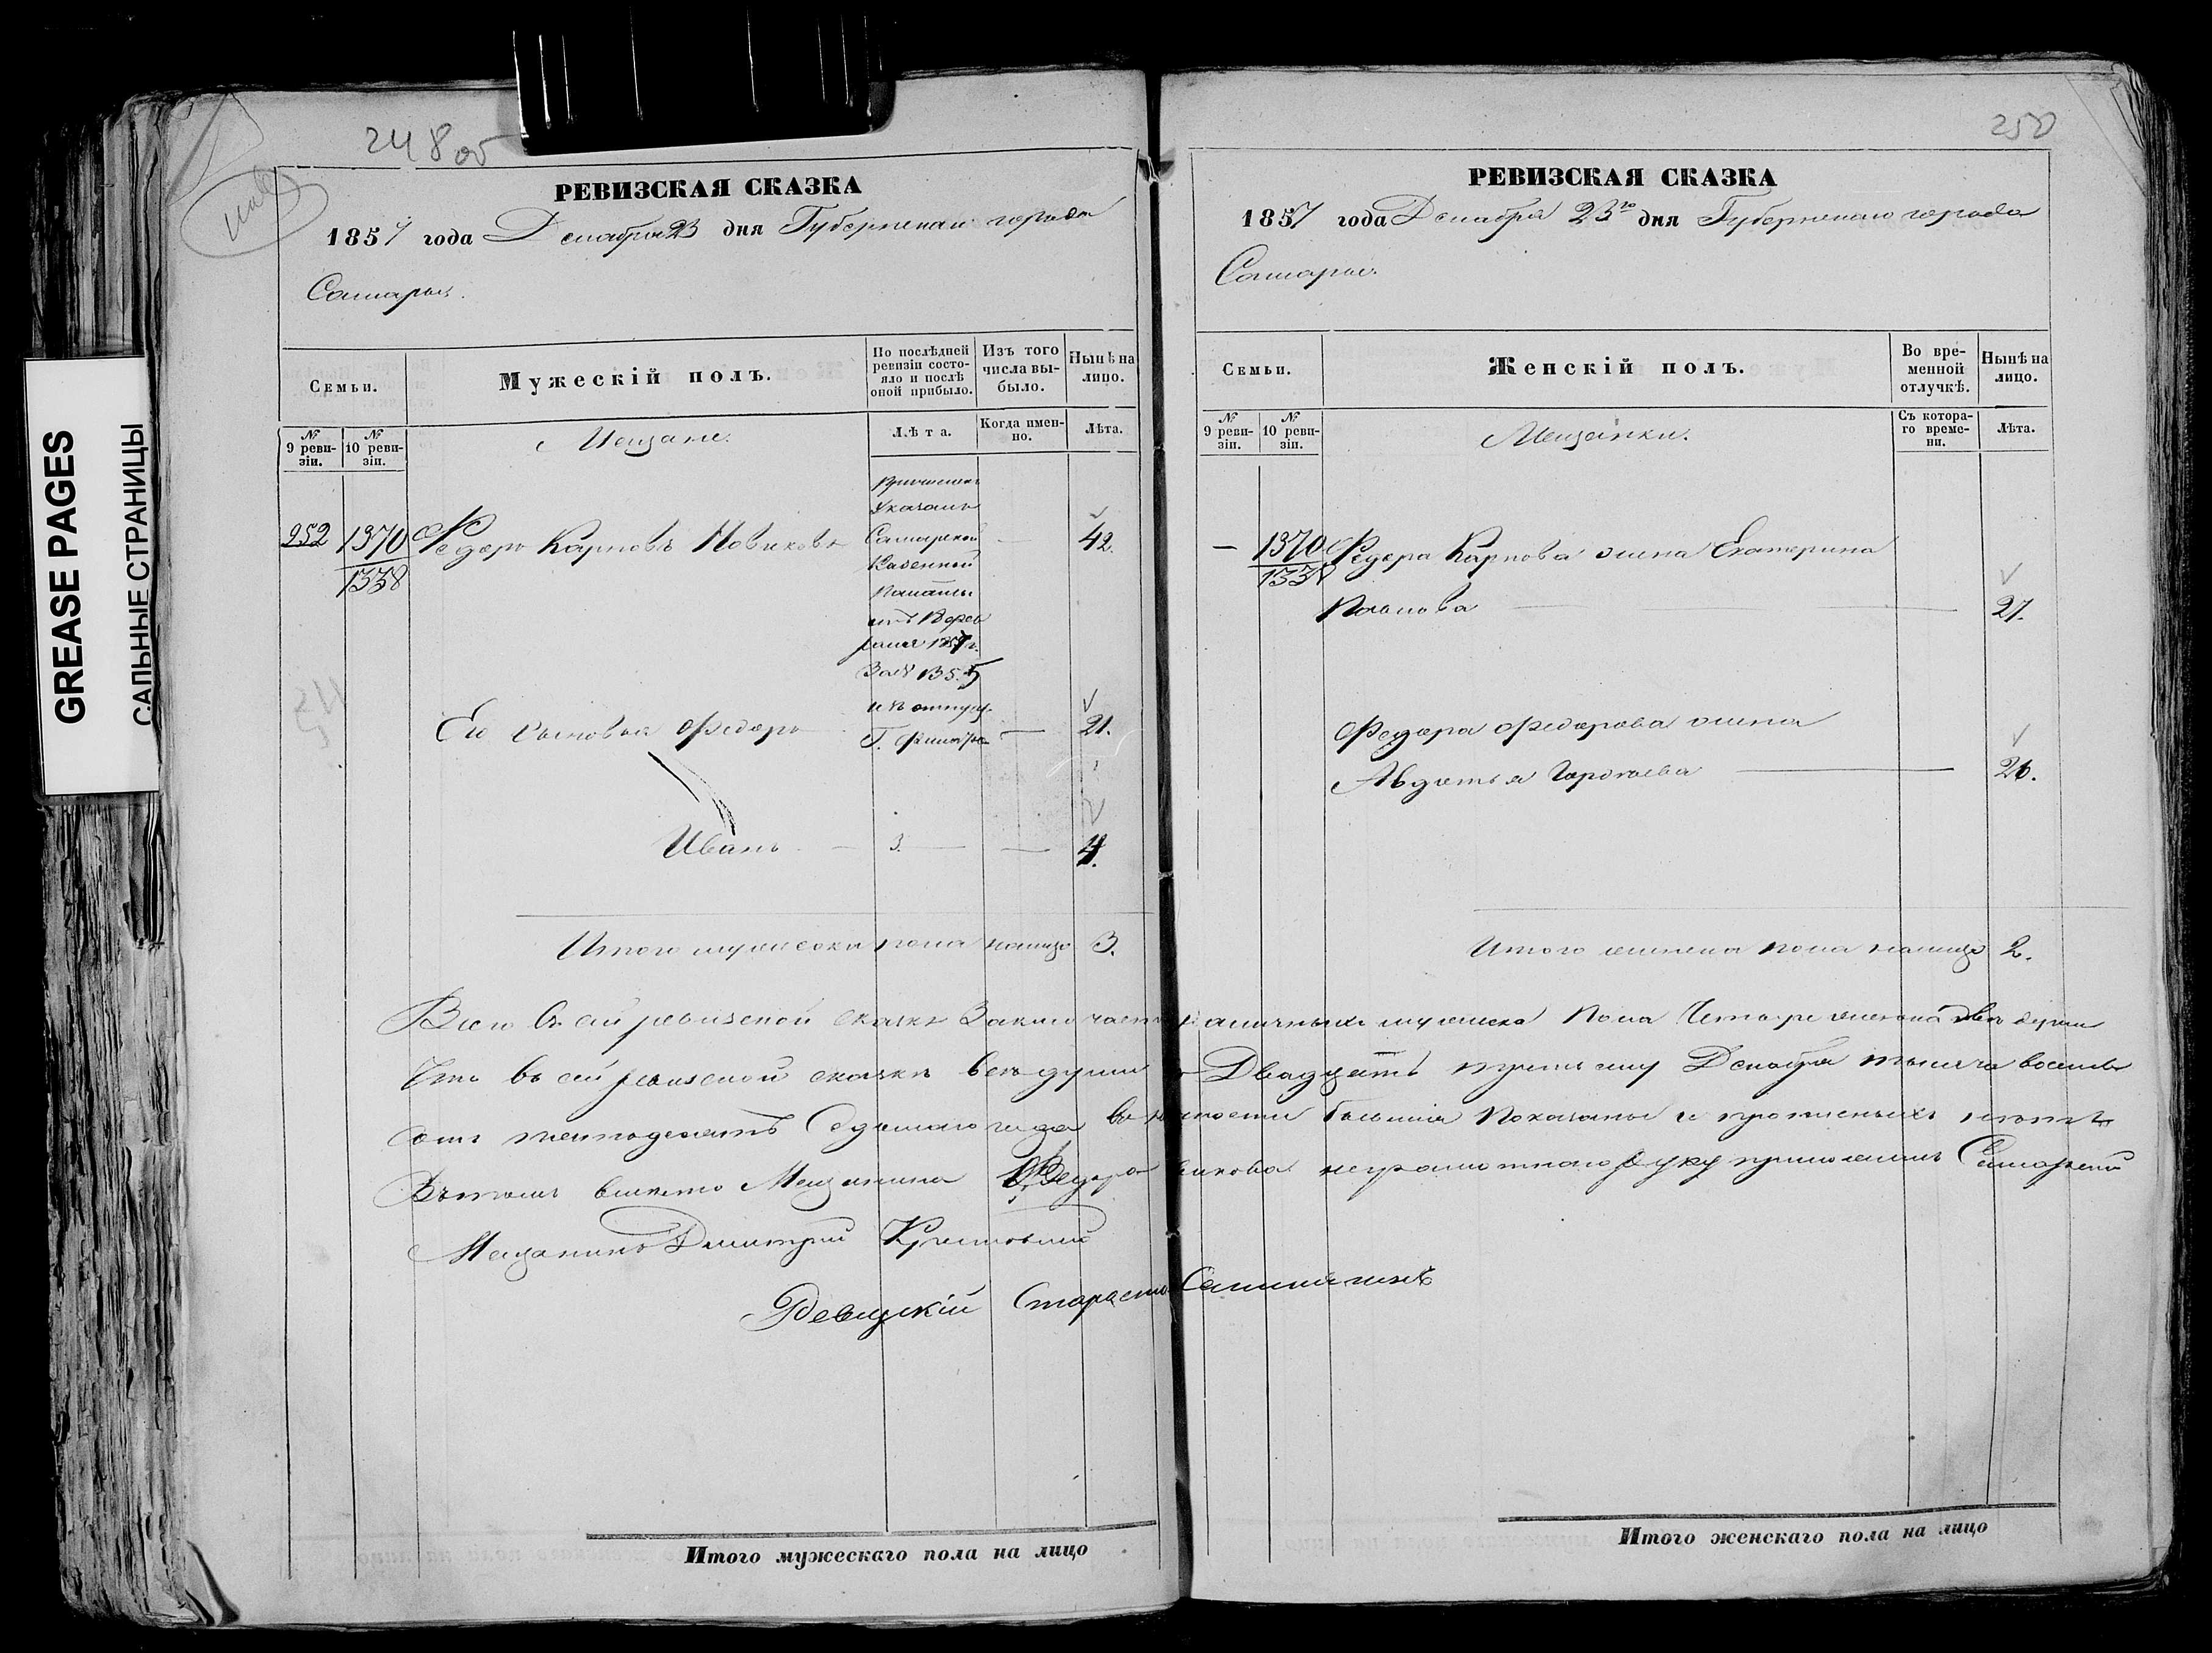 248 об
РЕВИЗСКАЯ СКАЗКА
1857 года Декабря 23 дня Губернскаго города
Самары.
Семьи.
Мужескій полъ.
По послѣдней ревизіи состояло и послѣ оной прибыло.
Изъ того числа выбыло.
Нынѣ на лицо.
№ 9 ревизіи.
№ 10 ревизіи.
Мещане.
Лѣта.
Когда именно.
Лѣта.
952 1370 Федоръ Карповъ Новиковъ 42.
1338
Указомъ
Самарской
Казенной
Палаты
За № 1355
Его сыновья Федоръ — 21.
Иванъ — 3. — 4.
Итого мужеска пола налицо 3.
250
РЕВИЗСКАЯ СКАЗКА
1857 года Декабря 23го дня Губернскаго города
Самары.
Семьи.
Женскій полъ.
Во временной отлучкѣ.
Нынѣ на лицо.
№ 9 ревизіи.
№ 10 ревизіи.
Мещанки.
Съ котораго времени.
Лѣта.
— 1370 Федора Карпова жена Екатерина
1338
27.
Федора Федорова жена
Авдотья — 26.
Итого женска пола налицо 2.
Всего въ сей ревизской сказкѣ Заключается наличныхъ мужеска Пола Четыре женска двѣ души
Что въ сей ревизской сказкѣ всѣ души Двадцать третьему Декабря тысяча восемь
сотъ пятьдесятъ Седьмаго года показаны и прописныхъ нѣтъ
Въ томъ вмѣсто Мещанина Федора Новикова неграмотнаго руку приложилъ Самарской
Мещанинъ Дмитрий
Ревизкій Староста
Итого мужескаго пола на лицо
Итого женскаго пола на лицо
GREASE PAGES
САЛЬНЫЕ СТРАНИЦЫ